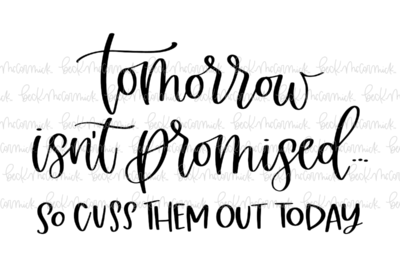 tomorrow
isn't promised...
SO CUSS THEM OUT TODAY